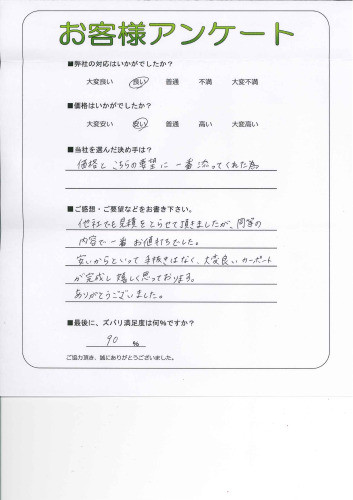 お客様アンケート
■弊社の対応はいかがでしたか?
大変良い 良い 普通 不満 大変不満
■価格はいかがでしたか?
大変安い 安い 普通 高い 大変高い
■当社を選んだ決め手は?
価格と こちらの要望に 一番 添ってくれた為。
■ご感想・ご要望などをお書き下さい。
他社でも見積をとらせて頂きましたが、同等の
内容で一番 お値打ちでした。
安いからといって 手抜きはなく、大変良いカーポート
が完成し 嬉しく思っております。
ありがとうございました。
■最後に、ズバリ満足度は何%ですか?
90 %
ご協力頂き、誠にありがとうございました。